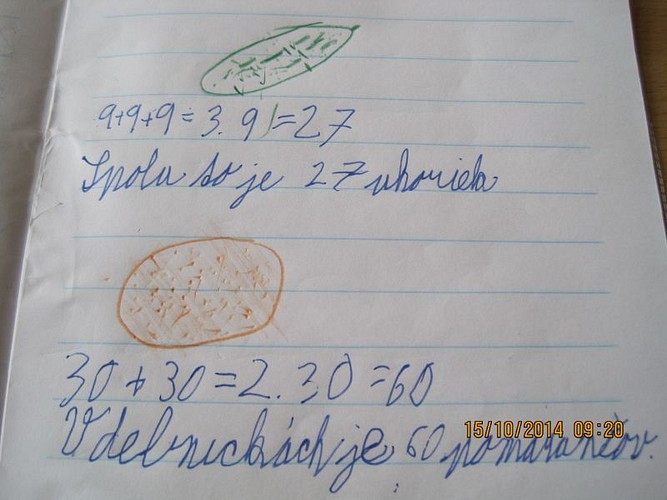 9+9+9 = 3. 9 = 27
Spolu to je 27 uhoriek
30 + 30 = 2. 30 = 60
V debničkách je 60 pomarančov.
15/10/2014 09:20